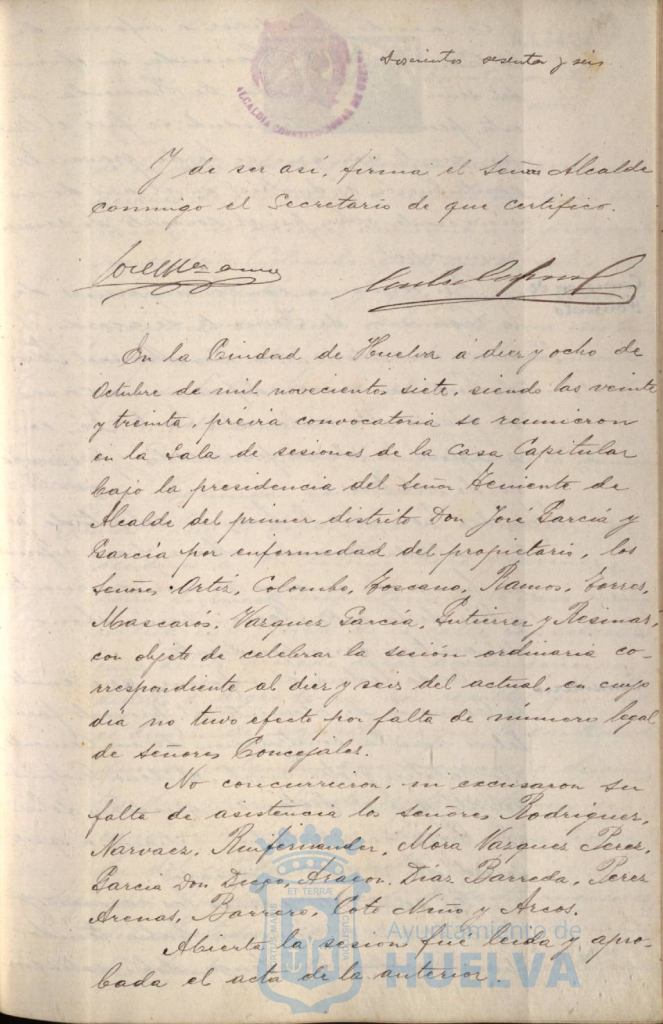 Doscientos sesenta y seis
ALCALDIA CONSTITUCIONAL DE HUELVA
Y de ser así, firma el Señor Alcalde
conmigo el Secretario de que certifico.
En la Ciudad de Huelva á diez y ocho de
Octubre de mil novecientos siete, siendo las veinte
y treinta, prévia convocatoria se reunieron
en la Sala de sesiones de la Casa Capitular
bajo la presidencia del Señor Teniente de
Alcalde del primer distrito Don José García y
García por enfermedad del propietario, los
Señores Ortiz, Colombo, Toscano, Ramos, Torres,
Mascarós, Vazquez García, Gutierrez y Resinas,
con objeto de celebrar la sesión ordinaria co-
rrespondiente al diez y seis del actual, en cuyo
día no tuvo efecto por falta de número legal
de Señores Concejales.
No concurrieron, ni excusaron su
falta de asistencia los señores Rodriguez,
Narvaez, Ruifernandez, Mora Vazquez Perez,
García Don Diego, Aragon, Díaz Barreda, Perez
Arenas, Barrero, Coto Niño y Arcos.
Abierta la sesion fué leida y apro-
bada el acta de la anterior.
Ayuntamiento de
HUELVA